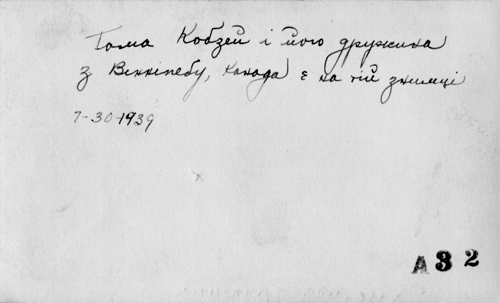 Тома Кобзей і його дружина
з Вінніпебу, Канада є на тій знимці
7-30-1939
A32